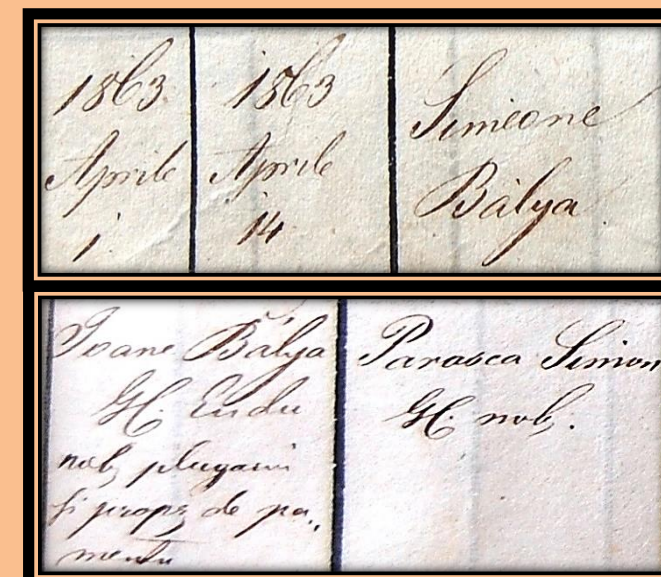 1863
Aprile
1
1863
Aprile
14
Simeone
Bálya
Ioane Bálya
GC.
nob, plugariu
si propr, de pa„
mentu
Parasca Simon
GC. nob,.